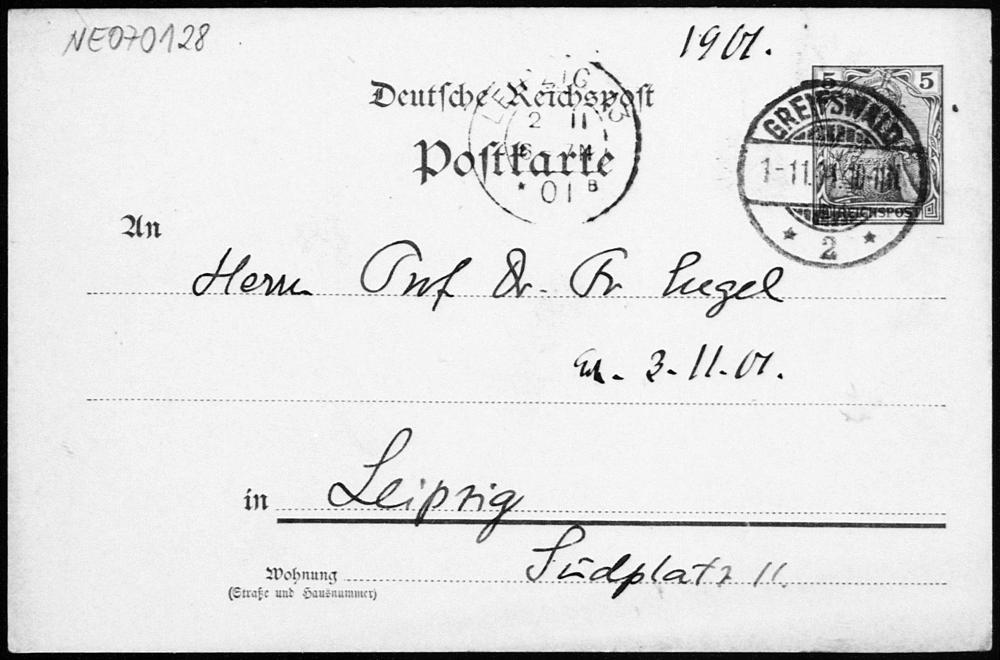 NE070128
1901.
Deutsche Reichspost
Postkarte
LEIPZIG
2 11
6-7N
* 01 B
5 5
GREIFSWALD
1-11.01. 10-11
REICHSPOST
* 2 *
An
Herrn Prof Dr. Fr Engel
3.11.01.
in Leipzig
Wohnung Südplatz 11.
(Straße und Hausnummer)